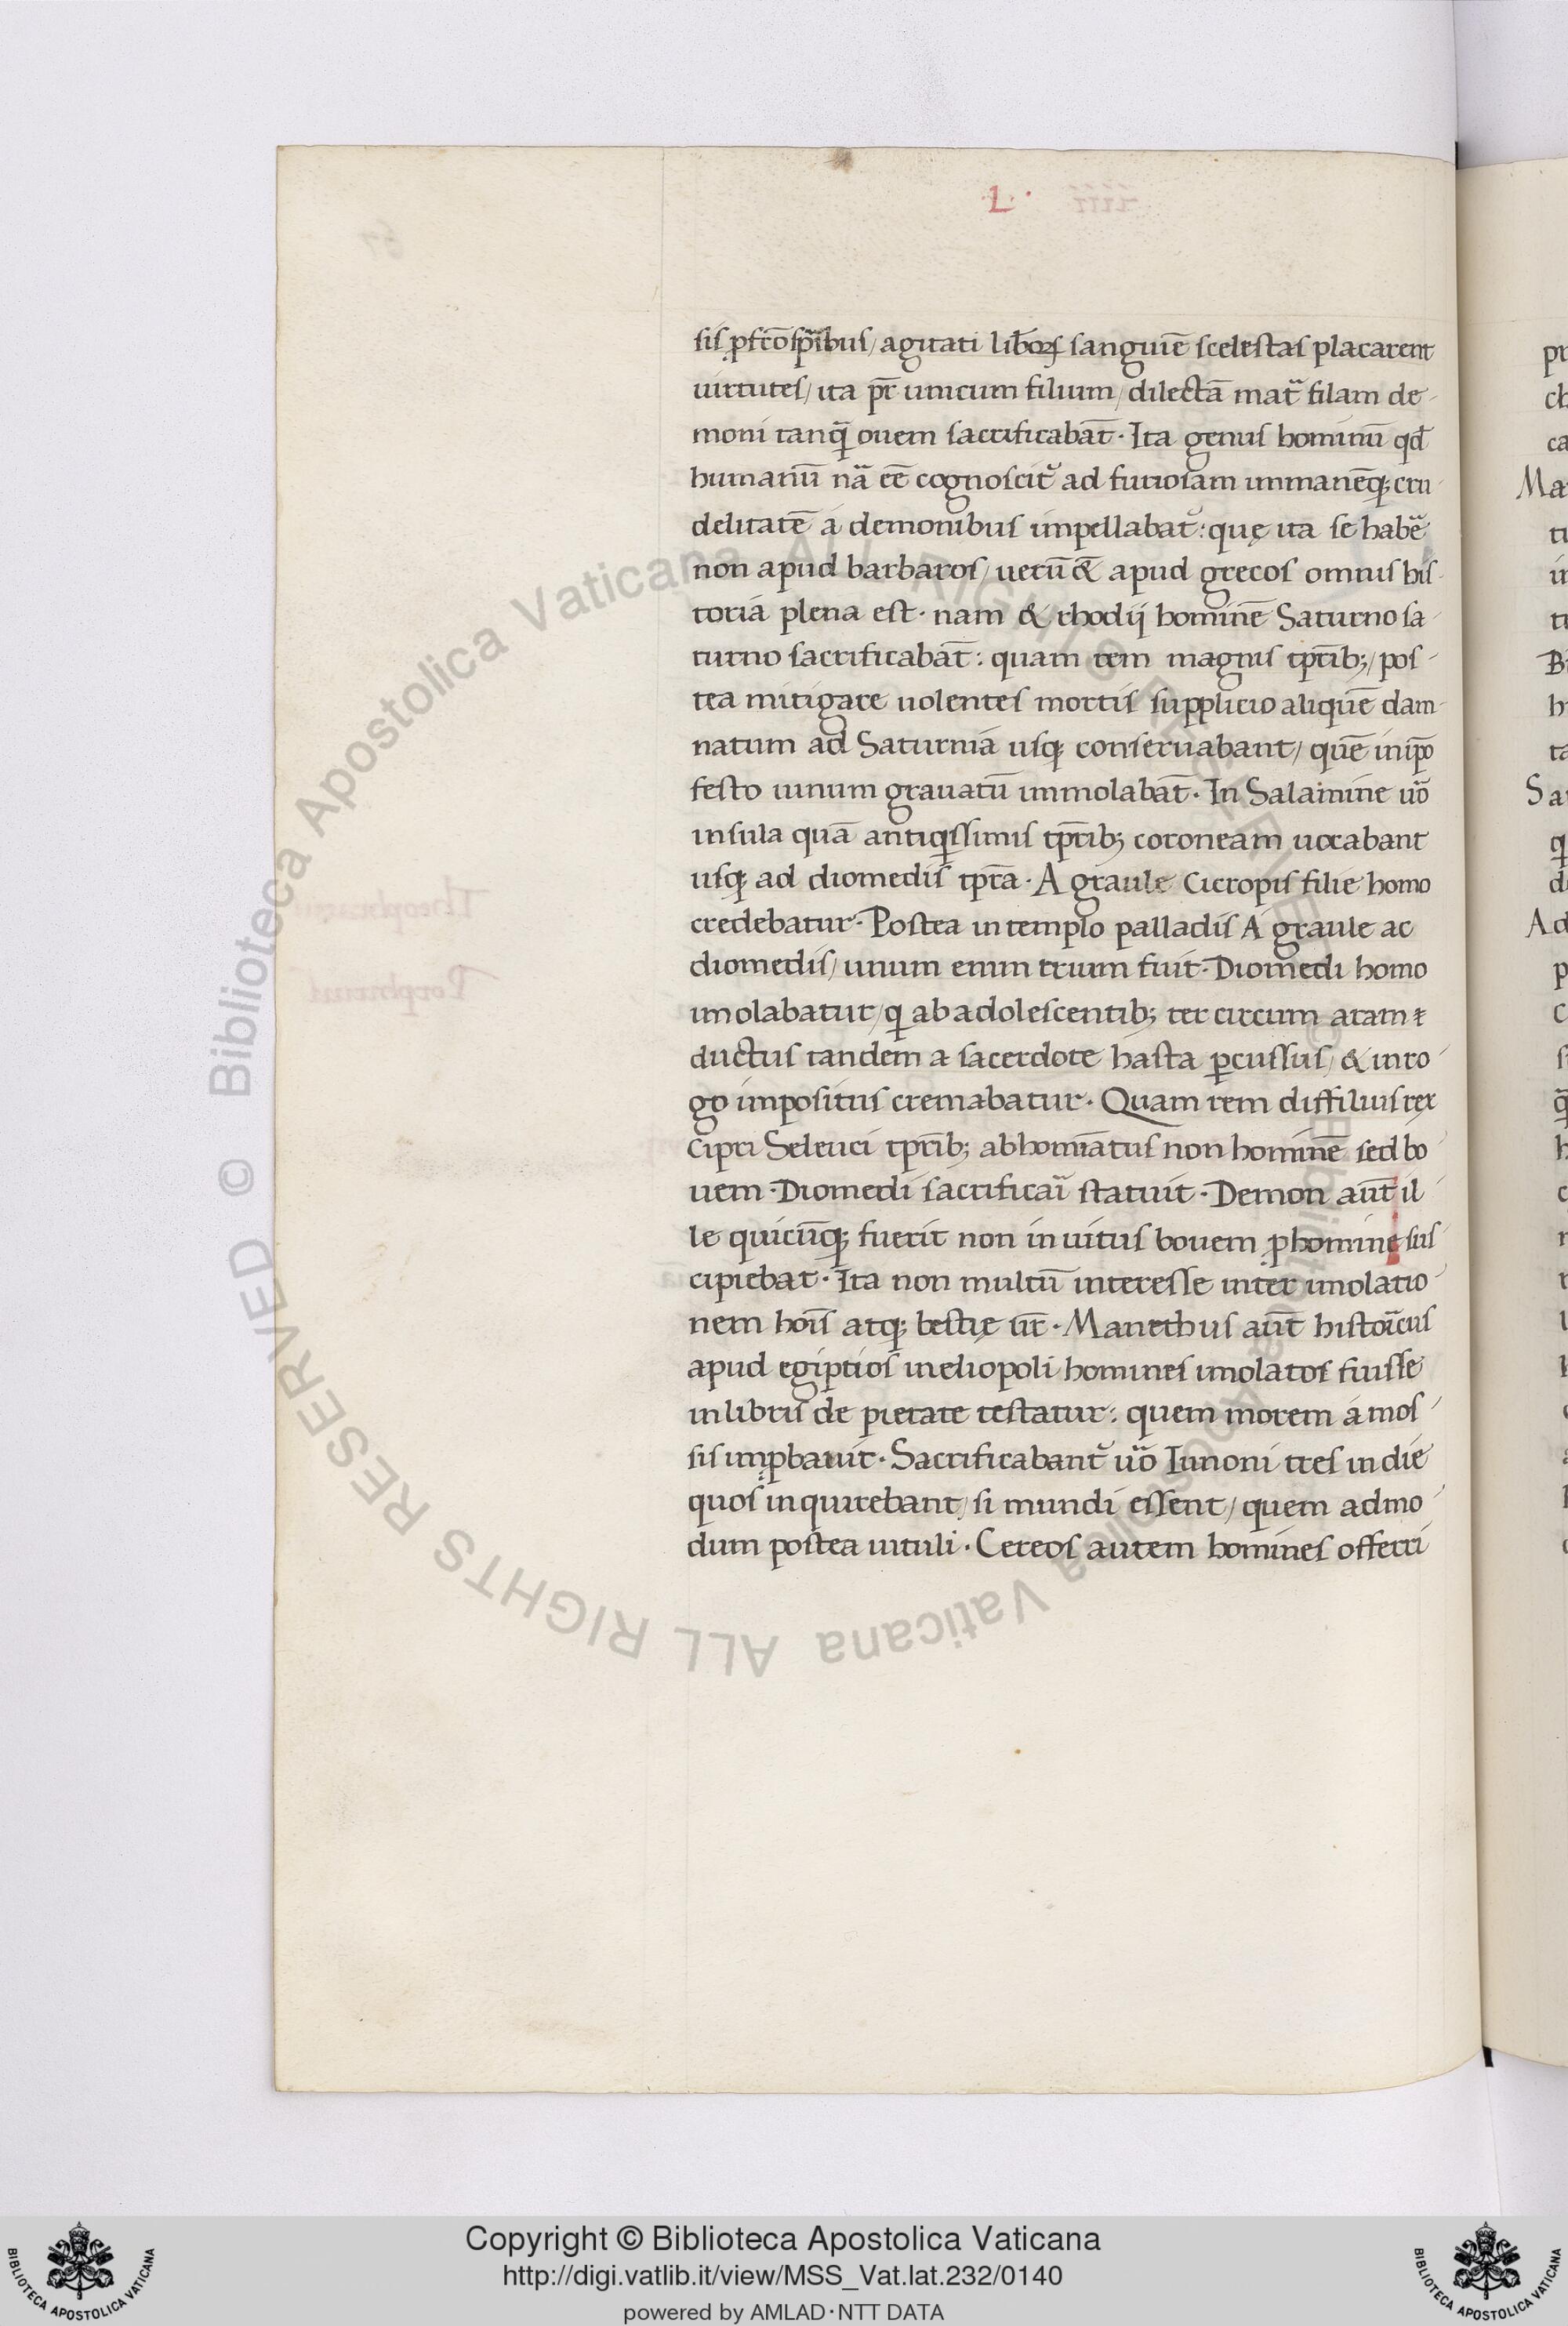 L·
sis ꝓfcōsp̄ribus / agitati liƀoꝝ sanguiē scelestas placarent
uirtutes / ita pr̄ unicum filium / dilectā mat̃ filam de-
moni tanq̃ ouem sacrificabāt · Ita genus hominū qđ
humanū nã eē cognoscit᷑ ad furiosam immanēq; cru-
delitatē a demonibus impellabat᷑ : quę ita se habẽ
non apud barbaros / uerū & apud grecos omnis his-
toria plena est · nam & rhodij hominē Saturno sa-
turno sacrificabāt : quam rem magnis tp̄rib; / pos-
tea mitigare uolentes mortis supplicio aliquē dam-
natum ad Saturnia usq; conseruabant / quē in ip̄o
festo uinum grauatū immolabāt · In Salamine uõ
insula quā antiqissimis tp̄rib; coroneam uocabant
usq; ad diomedis tp̄ra · A graule Cicropis filie homo
credebatur · Postea in templo palladis A graule ac
diomedis / unum enim trium fuit · Diomedi homo
imolabatur / q ab adolescentib; ter circum aram ⁊
ductus tandem a sacerdote hasta ꝑcussus / & in ro-
go impositus cremabatur · Quam rem diffiluis rex
Cipri Seleuci tp̄rib; abhomīatus non hominē sed bo-
uem · Diomedi sacrificaĩ statuit · Demon aūt il-
le quicūq; fuerit non inuitus bouem ꝓ homine sus-
cipiebat · Ita non multū interesse inter imolatio-
nem hoīs atq; bestię ūr · Manethus aūt histoĩcus
apud egiptios in eliopoli homines imolatos fuisse
in libris de pietate testatur : quem morem amos-
sis imꝓbauit · Sacrificabant᷑ uõ Iunoni tres in die
quos inquirebant / si mundi essent / quem admo-
dum postea uituli · Cereos autem homines offerri
Copyright © Biblioteca Apostolica Vaticana
http://digi.vatlib.it/view/MSS_Vat.lat.232/0140
powered by AMLAD·NTT DATA